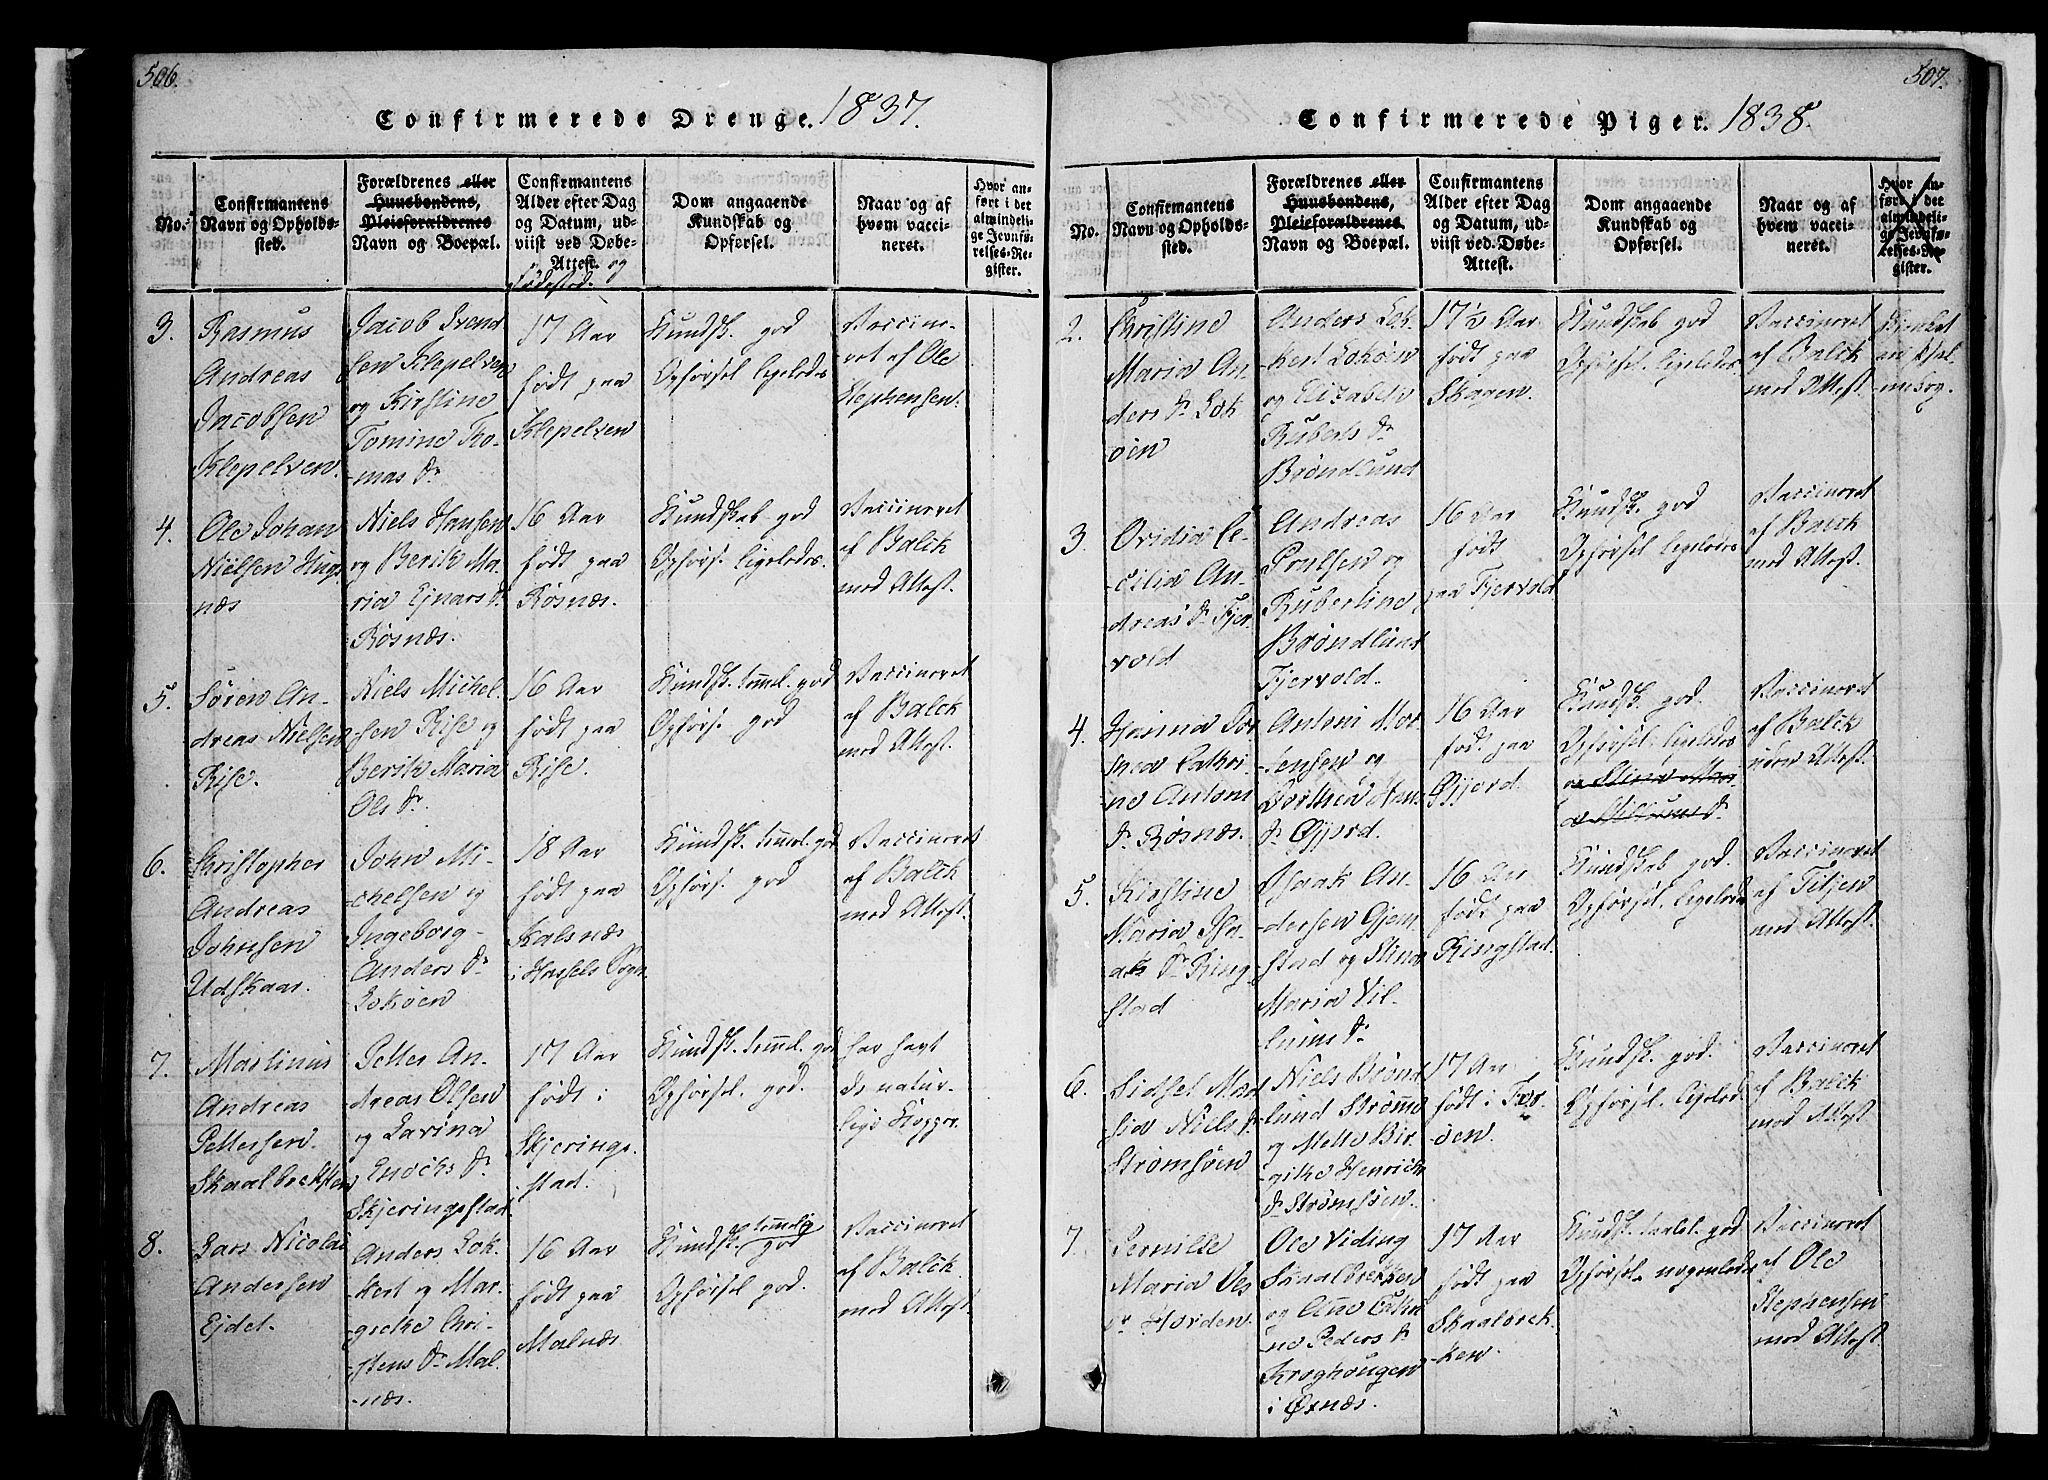 506.
Confirmerede Drenge. 1837.
No.
Confirmantens
Navn og Opholds-
sted.
Forældrenes eller
Huusbondens,
Pleieforældrenes
Navn og Boepæl.
Confirmantens
Alder efter Dag
og Datum, ud-
viist ved Døbe-
Attest. og
fødested.
Dom angaaende
Kundskab og
Opførsel.
Naar og af
hvem vacci-
neret.
Hvor an-
ført i det
almindeli-
ge Jevnfø-
relses-Re-
gister.
3.
Rasmus
Andreas
Jacobsen
Klepelven.
Jacob Svend
sen Klepelven
og Kirstine
Tomine To-
-mas Dr
17 Aar
født paa
Klepelven
Kundsk. god
Opførsel ligeledes
Vaccine-
ret af Ole
Stephensen.
4.
Ole Johan
Nielsen
næs
Niels Hansen
og Berit Ma-
ria Ejnars Dr
Røsnæs.
16 Aar
født paa
Røsnæs.
Kundskab god
Opførs. ligeledes.
Vaccineret
af Balck
med Attest.
5.
Søren An-
dreas Nielsen
Rise.
Niels Michel-
sen Rise og
Berit Maria
Ols Dr.
16 Aar
født paa
Rise.
Kundsk. temmel. god
Opførs. god
Vaccineret
af Balck
med Attest.
6.
Christopher
Andreas
Johnsen
Udskaar.
John Mi-
-chelsen og
Ingeborg
Anders Dr
Sokøen
18 Aar
født paa
Kalsnæs
i Hassels Sogn
Kundsk. temmel. god
Opførs. god
Vaccineret
af Balck
med Attest.
7.
Martinus
Andreas
Pettersen
Skaalbrekken
Petter An-
-dreas Olsen
og Lavina
Enochs Dr
Skjeringsstad.
17 Aar
født i
Skjerings-
stad.
Kundsk. temmel. god
Opførsel god.
har havt
de natur-
lige Kopper.
8.
Lars Nicolai
Andersen
Ejdet.
Anders Lok-
-kert og Mar-
grethe Chri-
-stens Dr Mal-
-næs.
16 Aar
født paa
Malnæs.
Kundsk. temmelig
god
Opførsel god.
Vaccineret
af Balck
med Attest.
507.
Confirmerede Piger. 1838.
No.
Confirmantens
Navn og Opholds-
sted.
Forældrenes eller
Huusbondens,
Pleieforældrenes
Navn og Boepæl.
Confirmantens
Alder efter Dag
og Datum, ud-
viist ved Døbe-
Attest.
Dom angaaende
Kundskab og
Opførsel.
Naar og af
hvem vacci-
neret.
Hvor an-
ført i det
almindeli-
ge Jevnfø-
relses-Re-
gister.
2.
Christine
Maria An-
ders Dr Sok
øen
Anders Lok-
kert Sokøen
og Elizabeth
Ruberts Dr
Brøndlund
17 1/2 Aar
født paa
Skagen.
Kundskab god
Opførsel ligeledes
Vaccineret
af Balck
med Attest.
Skienket
en Psal-
mebog.
3.
Ovidia Ce-
-cilia An-
dreas Dr Fjer-
vold
Andreas
Poulsen og
Ruberline
Brøndlund
Fjervold.
16 Aar
født
paa Fjervold
Kundsk. god
Opførsel ligeledes
Vaccineret
af Balck
med Attest.
4.
Hanna Dor-
thea Cathri-
ne Antoni
Dr Røsnæs.
Antoni Mor-
-tensen og
Dorthea Hans
Dr Øjjord.
16 Aar
født paa
Øjjord.
Kundsk. god.
Opførsel ligeledes
Vaccineret
af Balck
uden Attest.
5.
Kirstine
Maria Isa-
-aks Dr Ring-
stad
Isaak An-
-dersen Gjem-
stad og Stina
Maria Vil-
lums Dr
16 Aar
født paa
Ringstad.
Kundskab god.
Opførsel ligeledes
Vaccineret
af Tetjen
med Attest.
6.
Sidsel Mad
sia Niels Dr
Strømsøen
Niels Brønd
lund Strømsø
og Mette Bir-
githe Henrichs
Dr Strømsøen.
17 Aar
født i Fær-
øen.
Kundsk. god.
Opførsel ligeled.
Vaccineret
af Balck
med Attest.
7.
Pernille
Maria Ols
Dr Horden.
Ole Viding
Skaalbrekken
og Ane Cathri
ne Peders Dr
Kroghougen
i Øxnæs.
17 Aar
født paa
Skaalbrek-
-ken.
Kundsk. taalel. god
Opførsel nogenledes
Vaccineret
af Ole
Stephensen
med Attest.